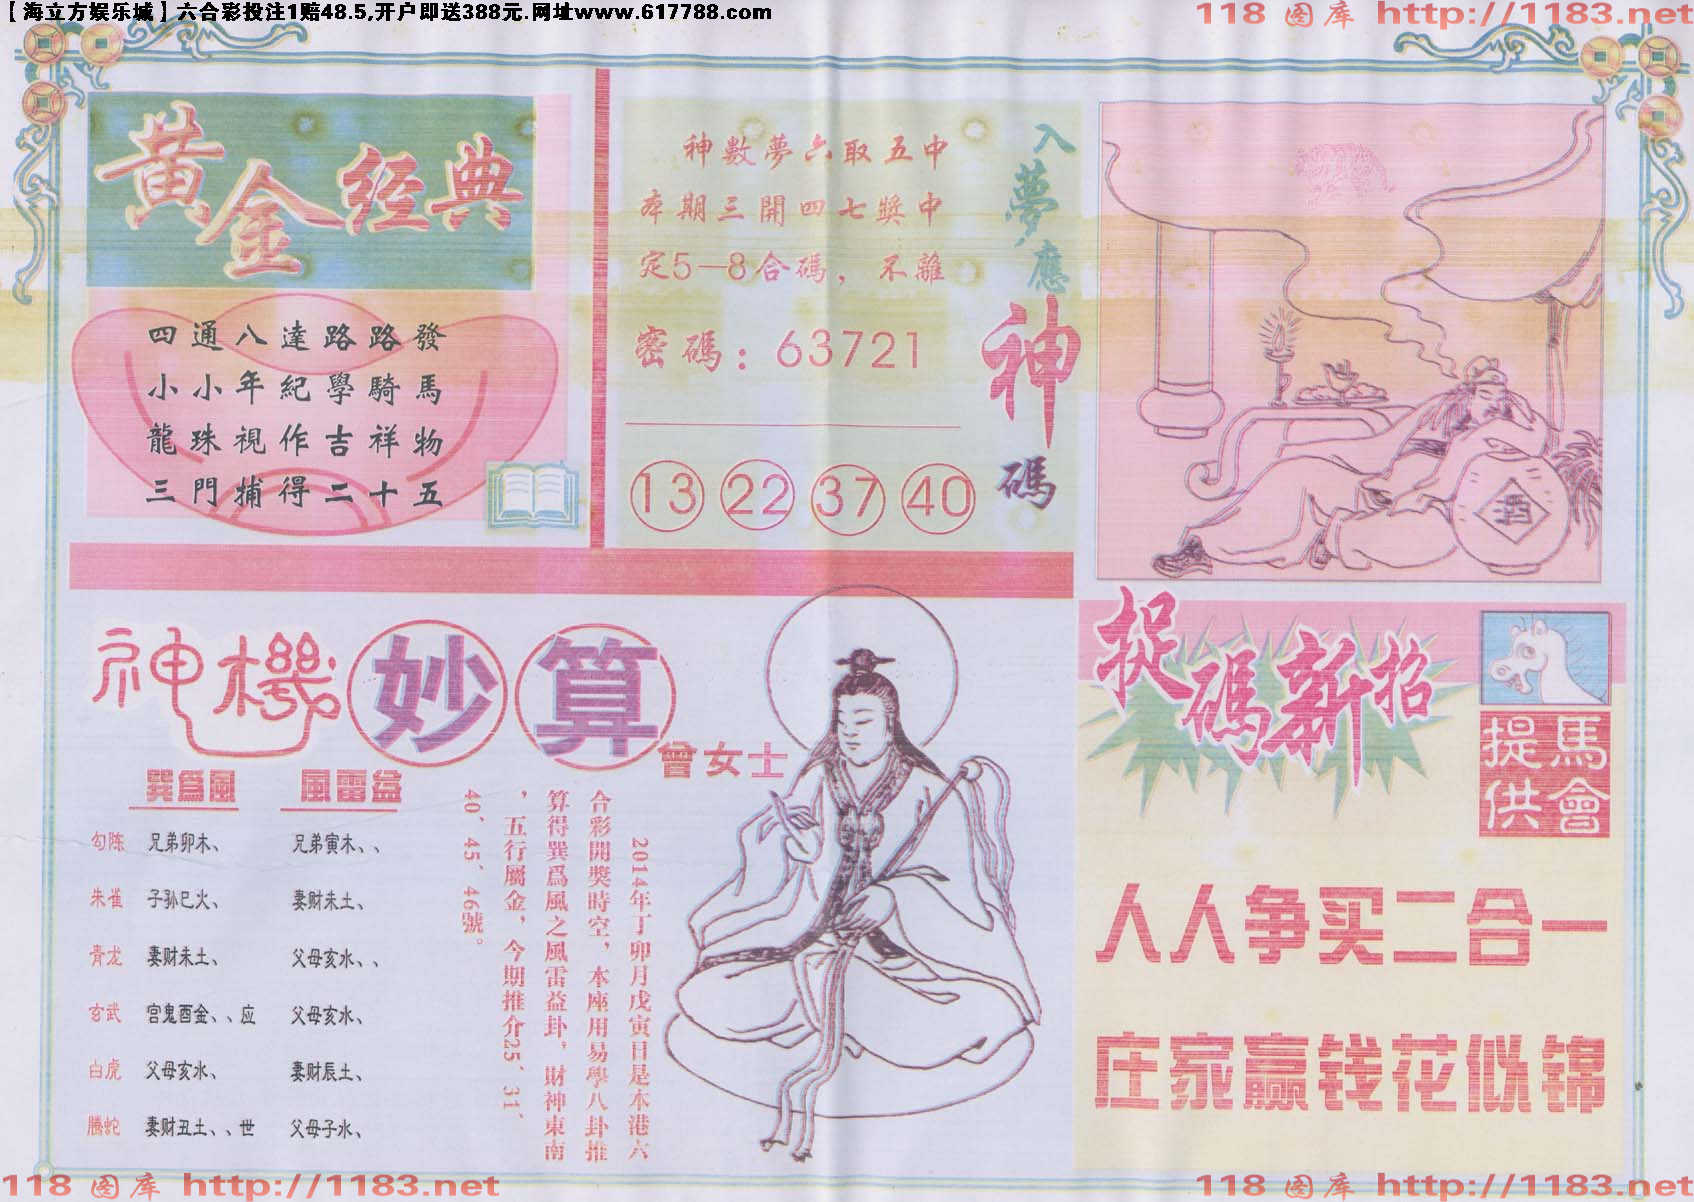 【海立方娱乐城】六合彩投注1赔48.5,开户即送388元.网址www.617788.com
118 图库 http://1183.net
黄金经典
四通八達路路發
小小年紀學騎馬
龍珠視作吉祥物
三門捕得二十五
入夢應神碼
神數夢六取五中
本期三開四七獎中
定5—8合碼，不離
密碼：63721
13 22 37 40
酒
神機妙算
曾女士
巽爲風 風雷益
勾陈 兄弟卯木、 兄弟寅木、、
朱雀 子孙巳火、 妻财未土、
青龙 妻财未土、 父母亥水、、
玄武 官鬼酉金、、应 父母亥水、
白虎 父母亥水、 妻财辰土、
腾蛇 妻财丑土、、世 父母子水、
2014年丁卯月戊寅日是本港六
合彩開獎時空，本座用易學八卦推
算得巽爲風之風雷益卦，財神東南
，五行屬金，今期推介25、31、
40、45、46號。
捉碼新招
馬會提供
人人争买二合一
庄家赢钱花似锦
118 图库 http://1183.net
118 图库 http://1183.net